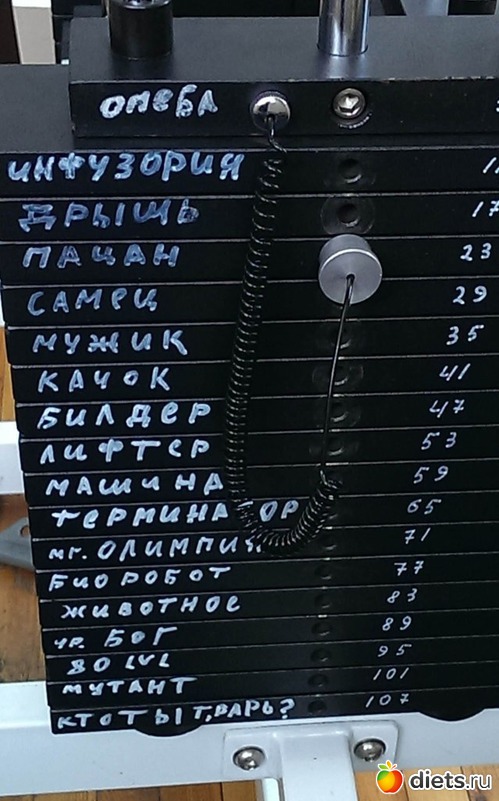 ОМЕБА
ИНФУЗОРИЯ 11
ДРЫЩЬ 17
ПАЦАН 23
САМЕЦ 29
МУЖИК 35
КАЧОК 41
БИЛДЕР 47
ЛИФТЕР 53
МАШИНА 59
ТЕРМИНАТОР 65
МГ. ОЛИМПИЯ 71
БИОРОБОТ 77
ЖИВОТНОЕ 83
УР. БОГ 89
80 LVL 95
МУТАНТ 101
КТО ТЫ ТВАРЬ? 107
diets.ru